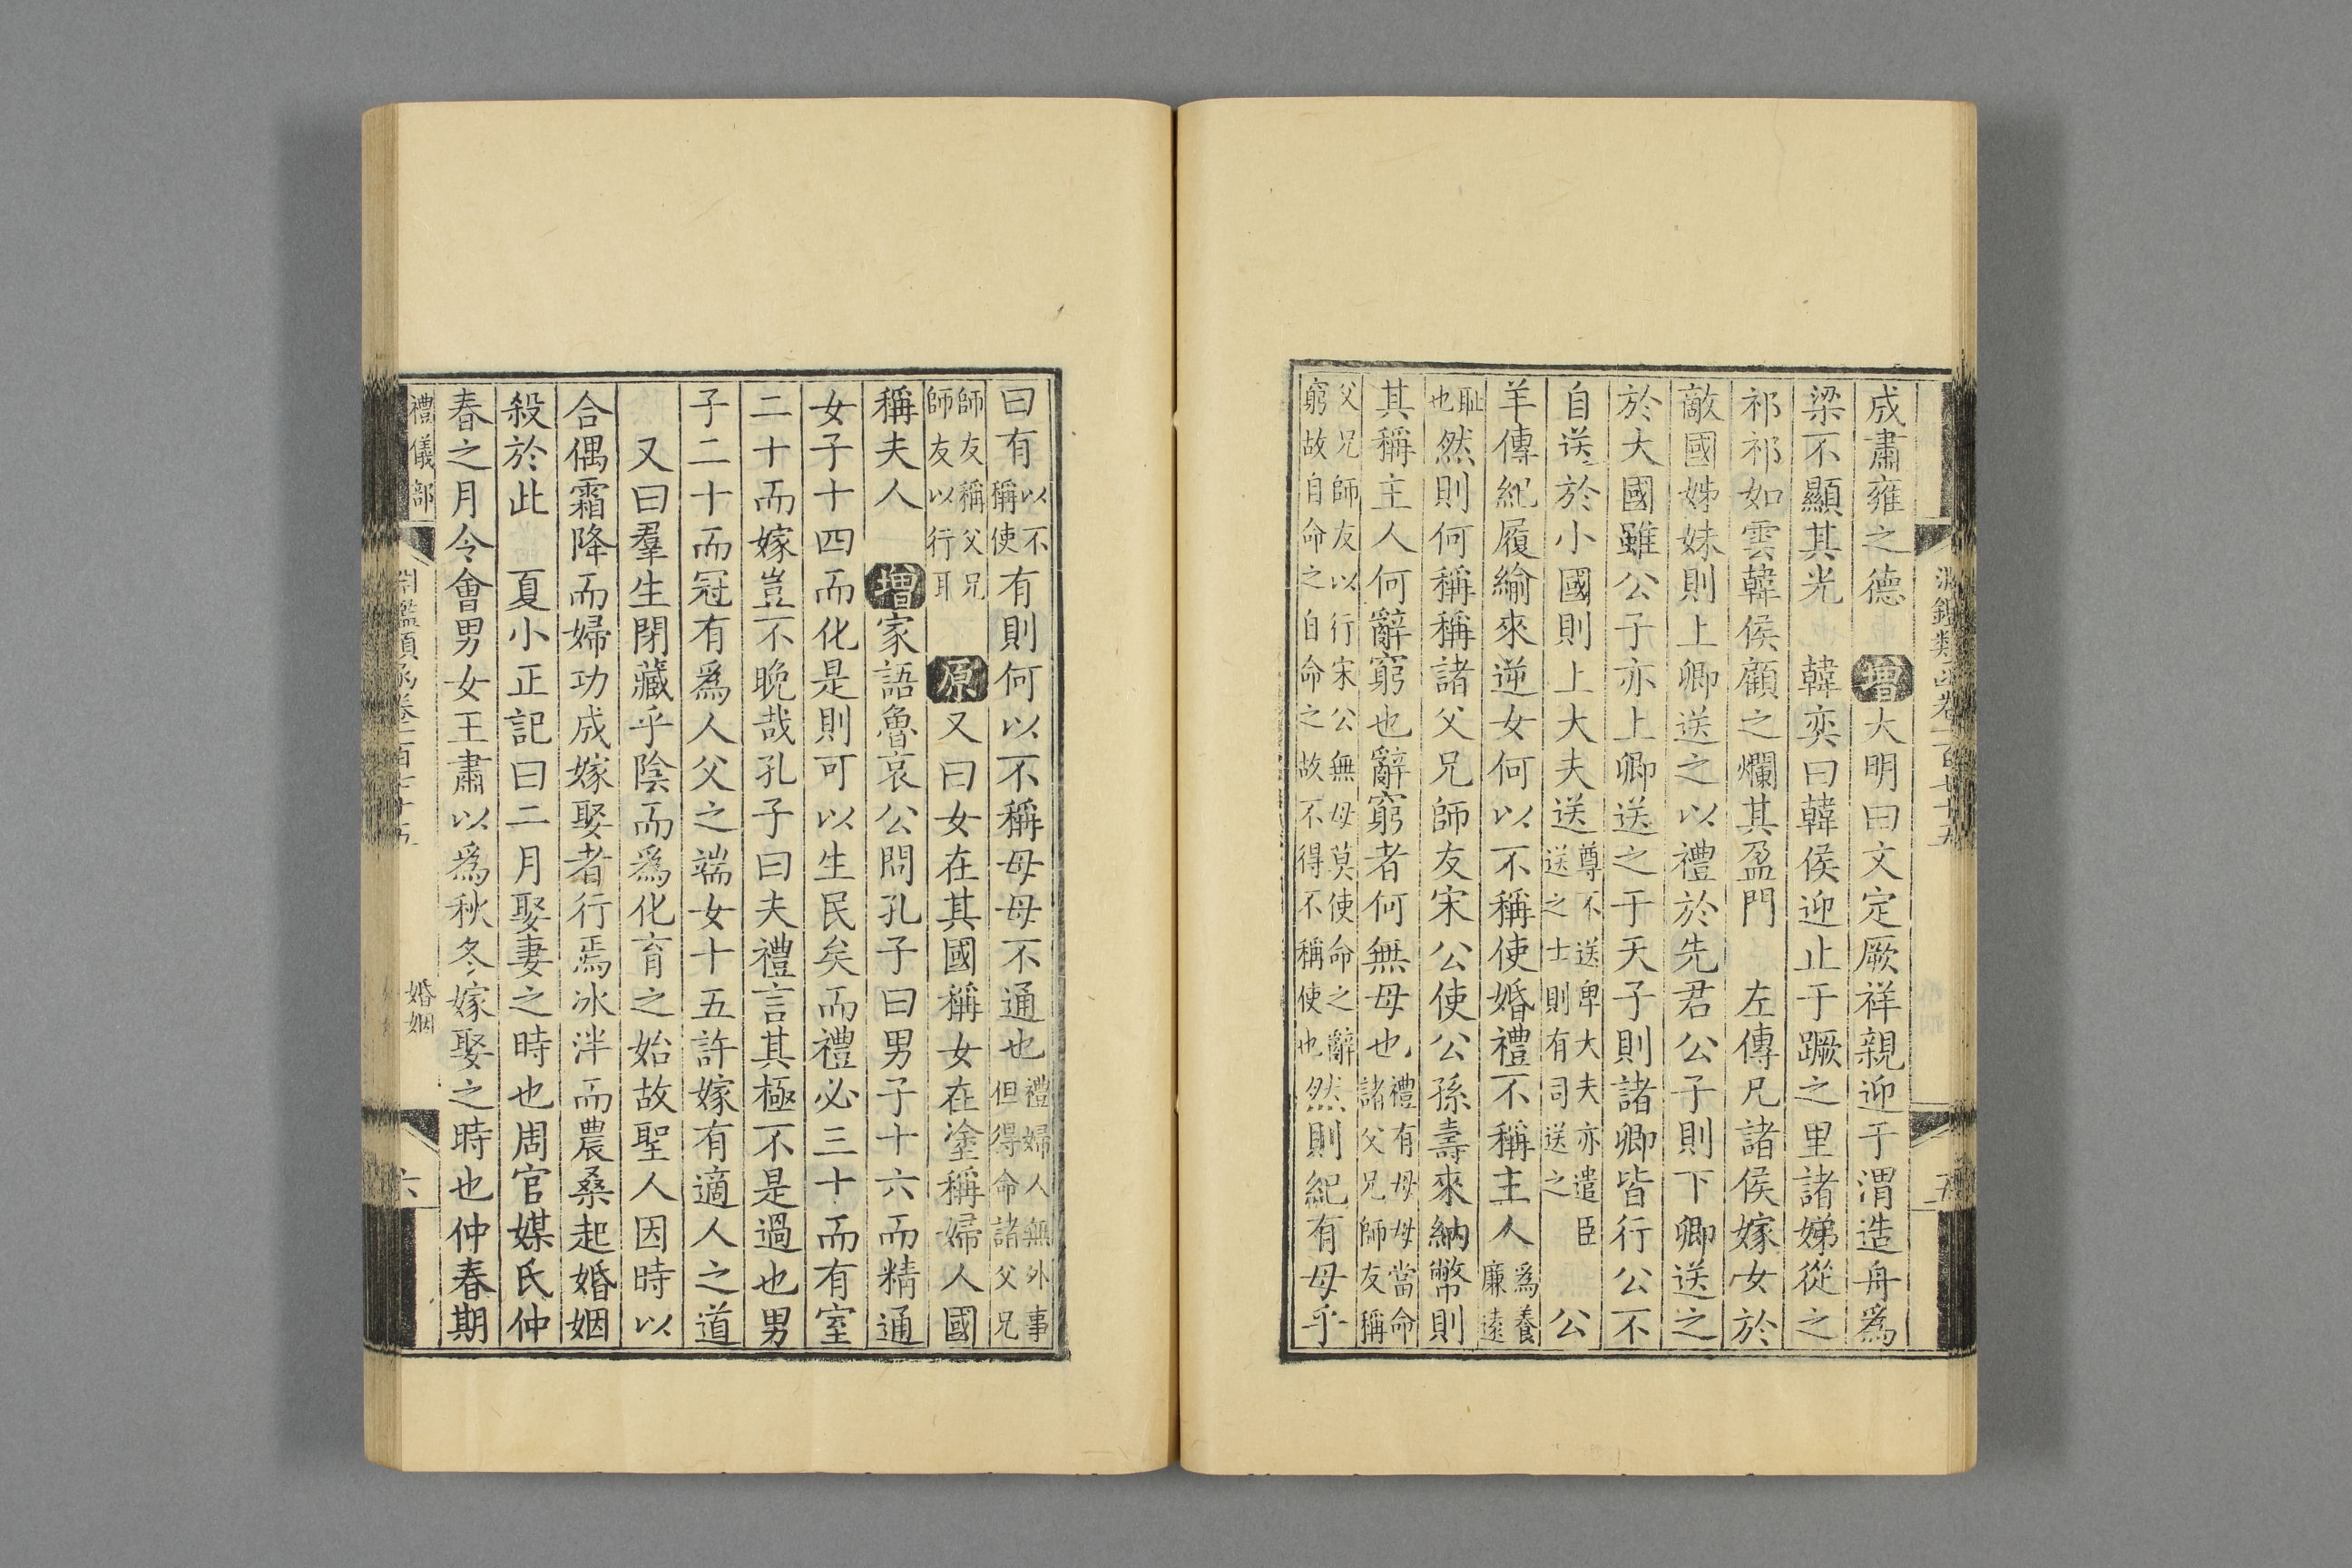 淵鑑類函卷一百七十五
五
成肅雍之德 增 大明曰文定厥祥親迎于渭造舟為
梁不顯其光 韓奕曰韓侯迎止于蹶之里諸娣從之
祁祁如雲韓侯顧之爛其盈門 左傳凡諸侯嫁女於
敵國姊妹則上卿送之以禮於先君公子則下卿送之
於大國雖公子亦上卿送之于天子則諸卿皆行公不
自送於小國則上大夫送尊不送卑大夫亦遣臣送之士則有司送之 公
羊傳紀履緰來逆女何以不稱使婚禮不稱主人為養廉遠
恥也然則何稱稱諸父兄師友宋公使公孫壽來納幣則
其稱主人何辭窮也辭窮者何無母也禮有母母當命諸父兄師友稱
父兄師友以行宋公無母莫使命之辭窮故自命之自命之故不得不稱使也然則紀有母乎
曰有以不稱使有則何以不稱母母不通也禮婦人無外事但得命諸父兄
師友稱父兄師友以行耳 原 又曰女在其國稱女在塗稱婦人國
稱夫人 增 家語魯哀公問孔子曰男子十六而精通
女子十四而化是則可以生民矣而禮必三十而有室
二十而嫁豈不晚哉孔子曰夫禮言其極不是過也男
子二十而冠有爲人父之端女十五許嫁有適人之道
又曰羣生閉藏乎陰而爲化育之始故聖人因時以
合偶霜降而婦功成嫁娶者行焉冰泮而農桑起婚姻
殺於此 夏小正記曰二月娶妻之時也周官媒氏仲
春之月令會男女王肅以爲秋冬嫁娶之時也仲春期
禮儀部
淵鑑類函卷一百七十五
婚姻
六